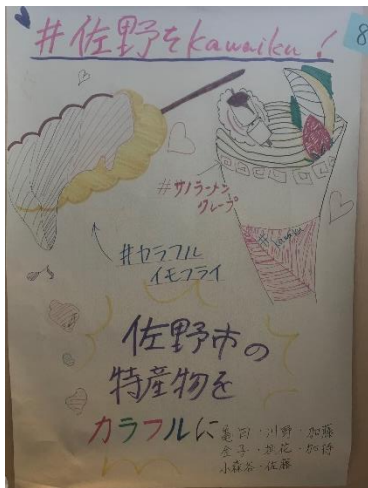 #佐野をkawaiku!
8
#サノラーメン
クレープ
#カラフル
イモフライ
佐野市の
特産物を
カラフルに
亀田・川野・加藤
金子・・加待
小森谷・佐藤